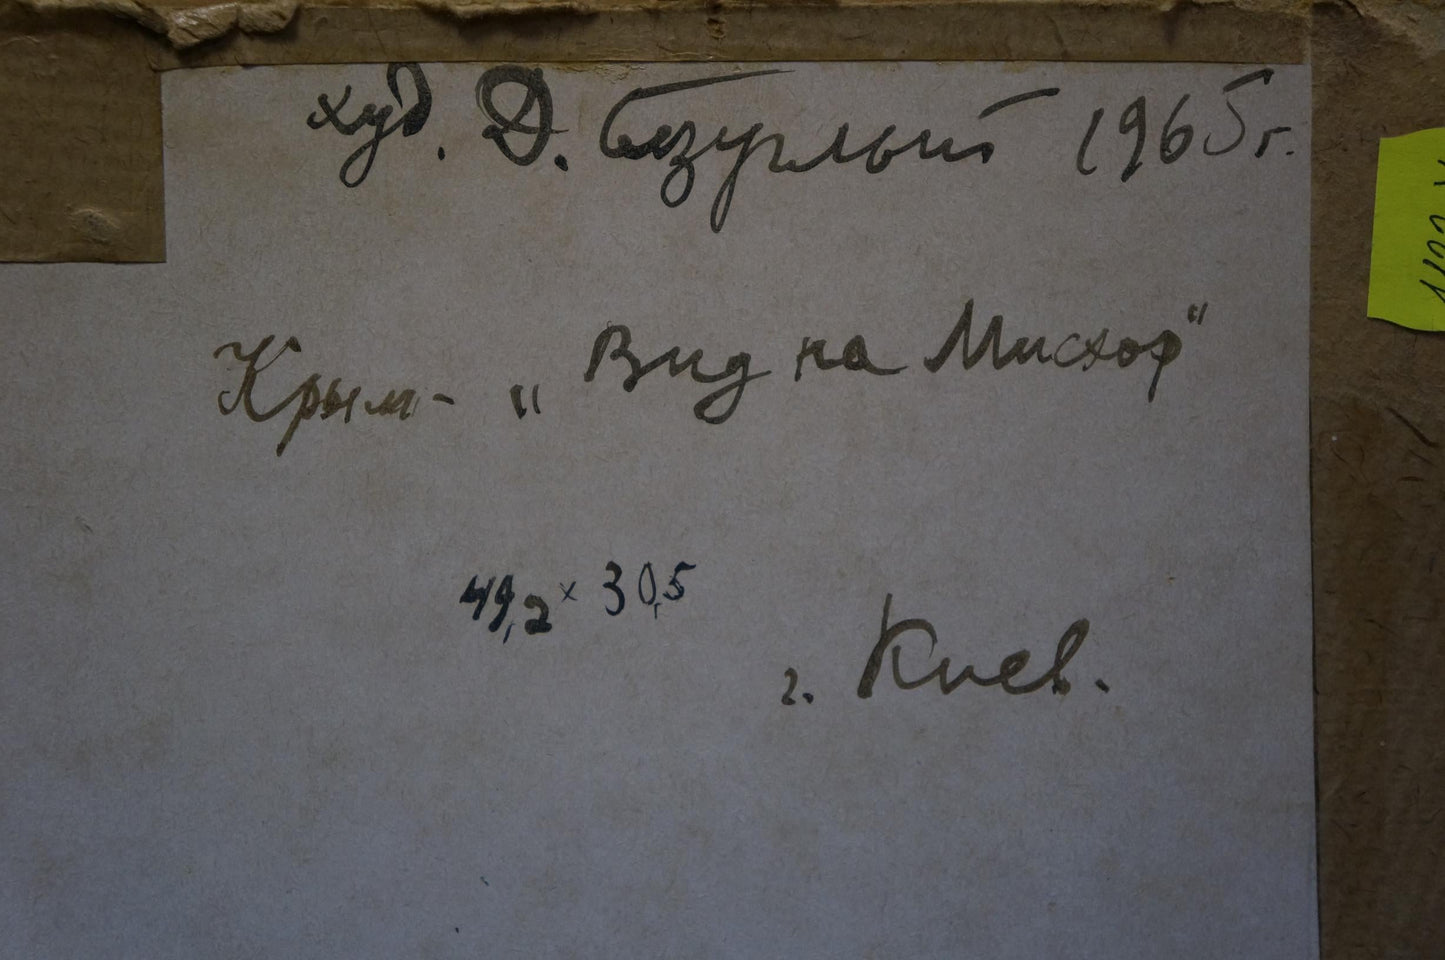 худ. Д. Безуглый 1965 г.
Крым - „Вид на Мисхор"
49,2 x 30,5
г. Киев.